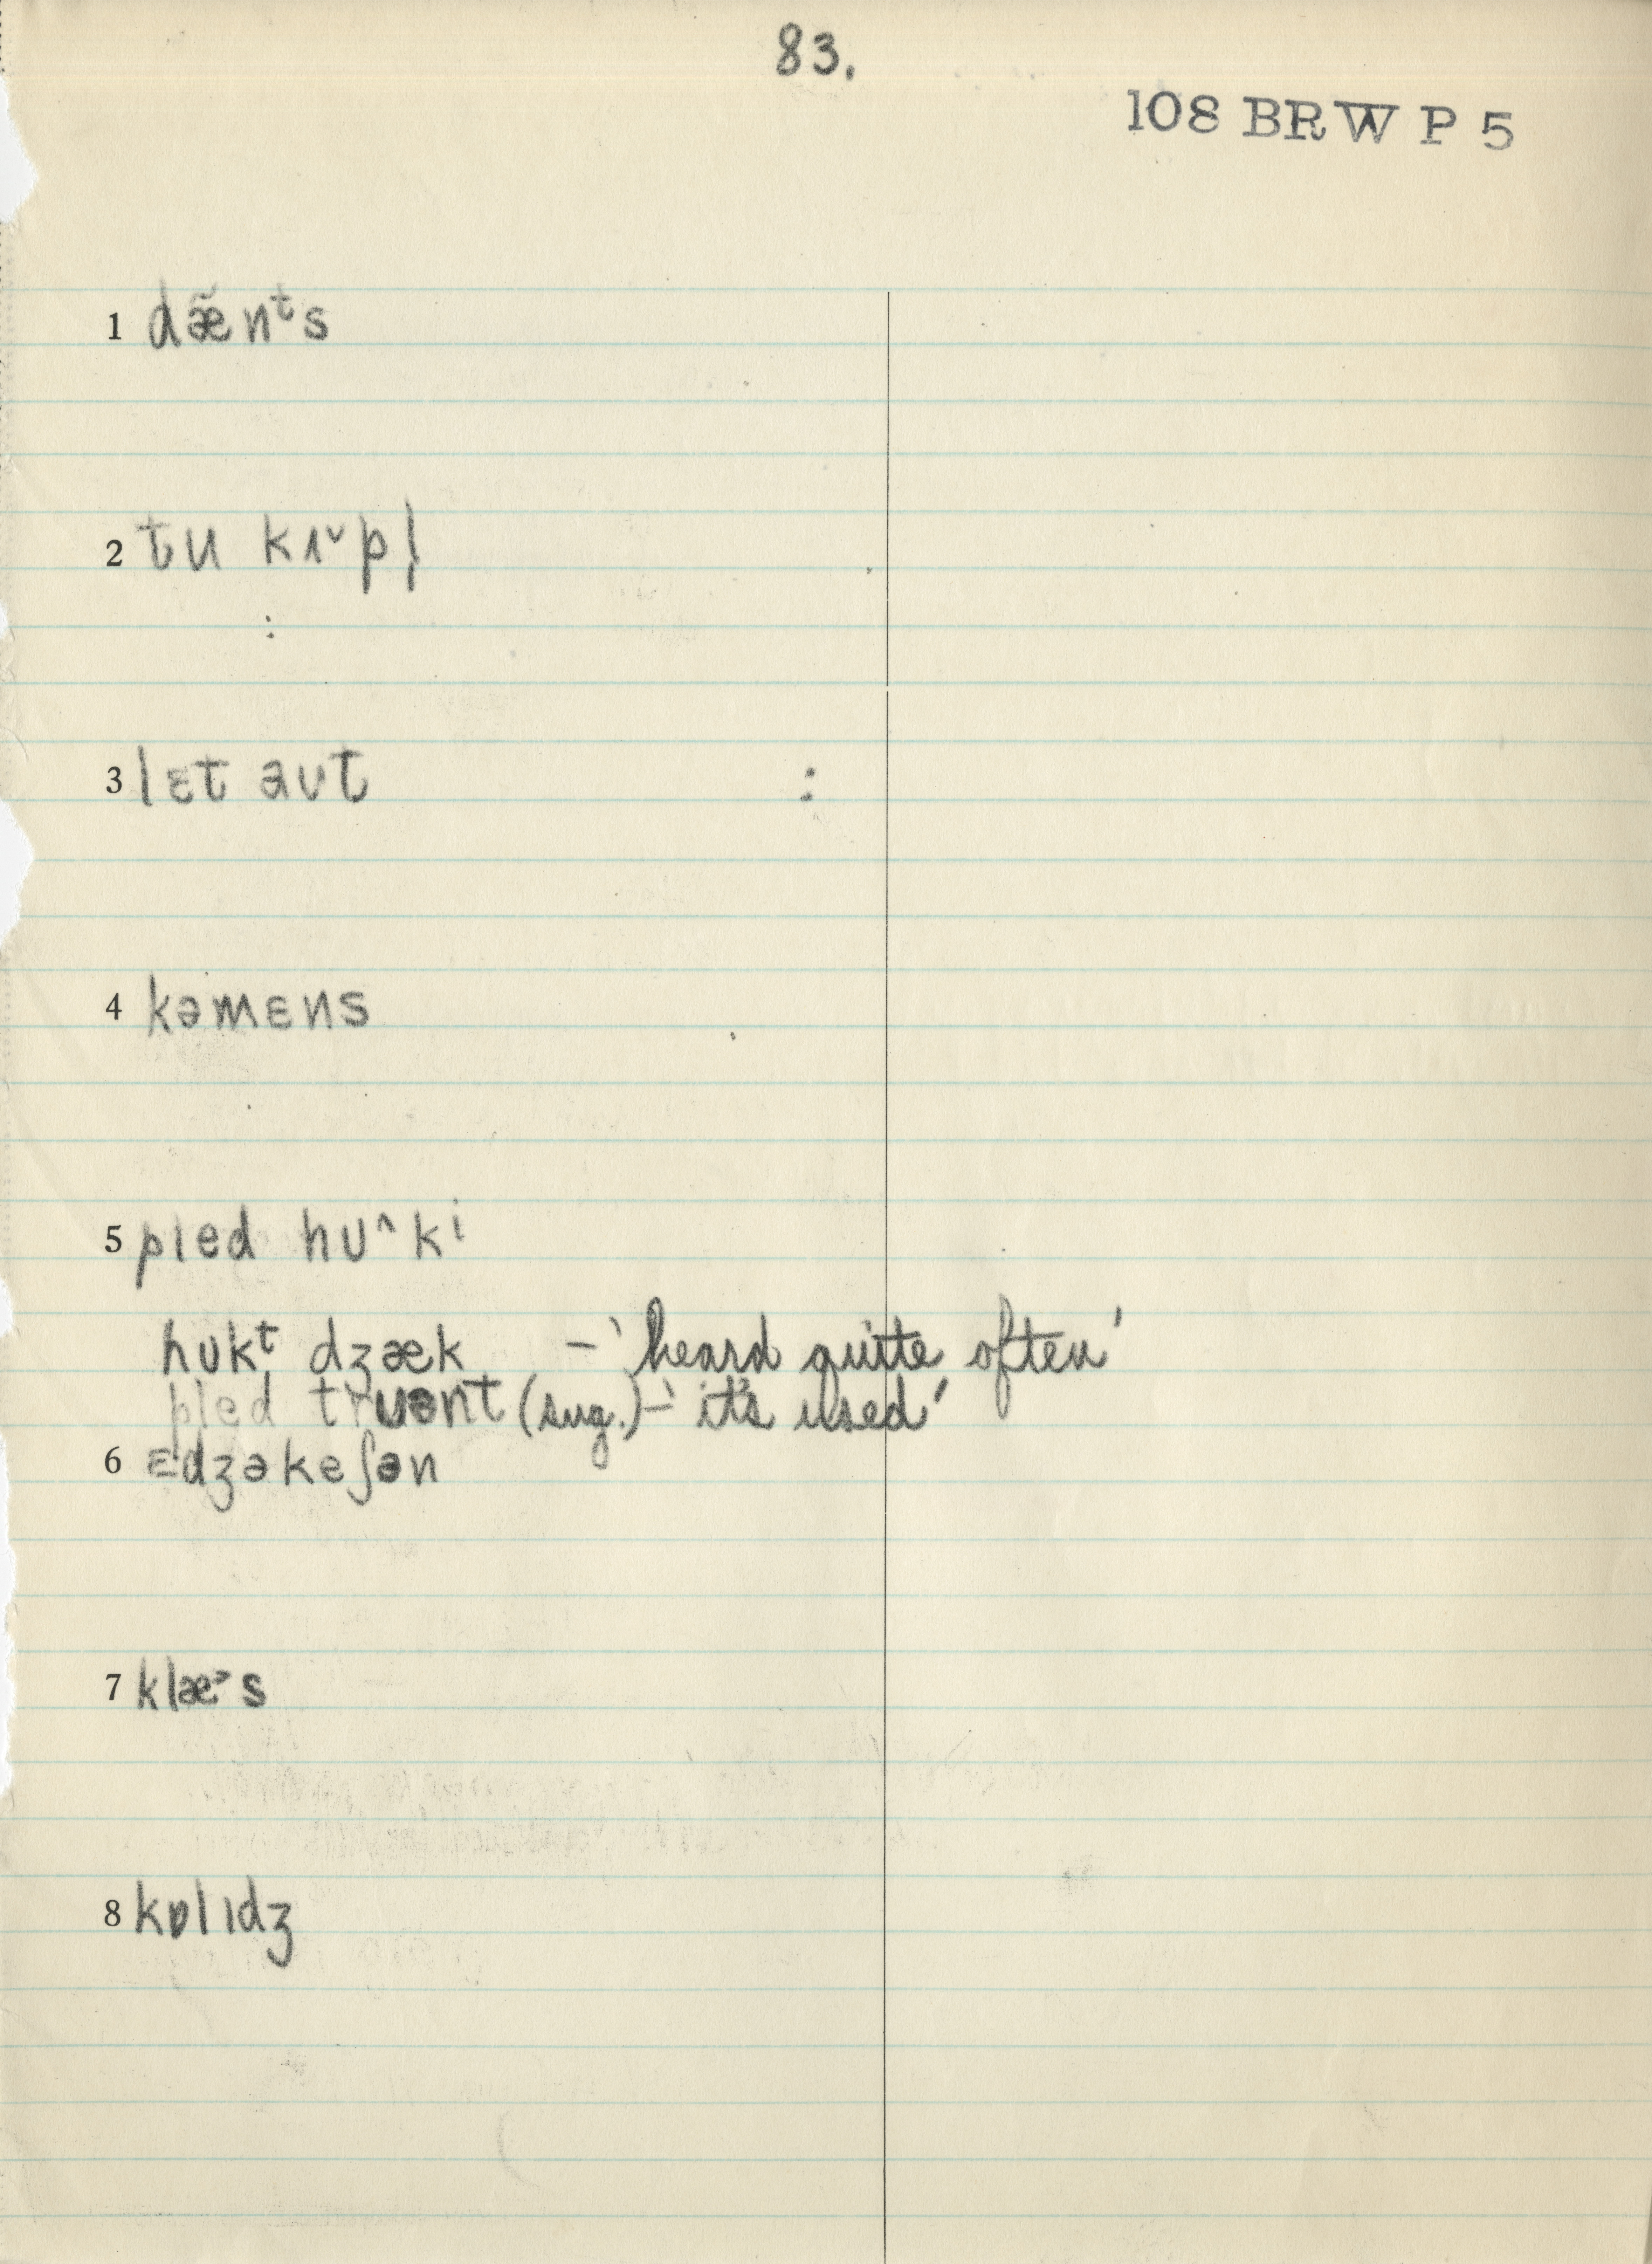 83.
108 BRW P 5
1 dæ̃nᵗs
2 tu kɪ˅pl̩
3 lɛt aʊt
4 kəmɛns
5 pled hʊ^kⁱ
hʊkᵗ dʒæk – 'heard quite often'
pled truənt (sug.) – 'it's used'
6 ɛdʒəkeʃən
7 klæ˃s
8 kɒlɪdʒ